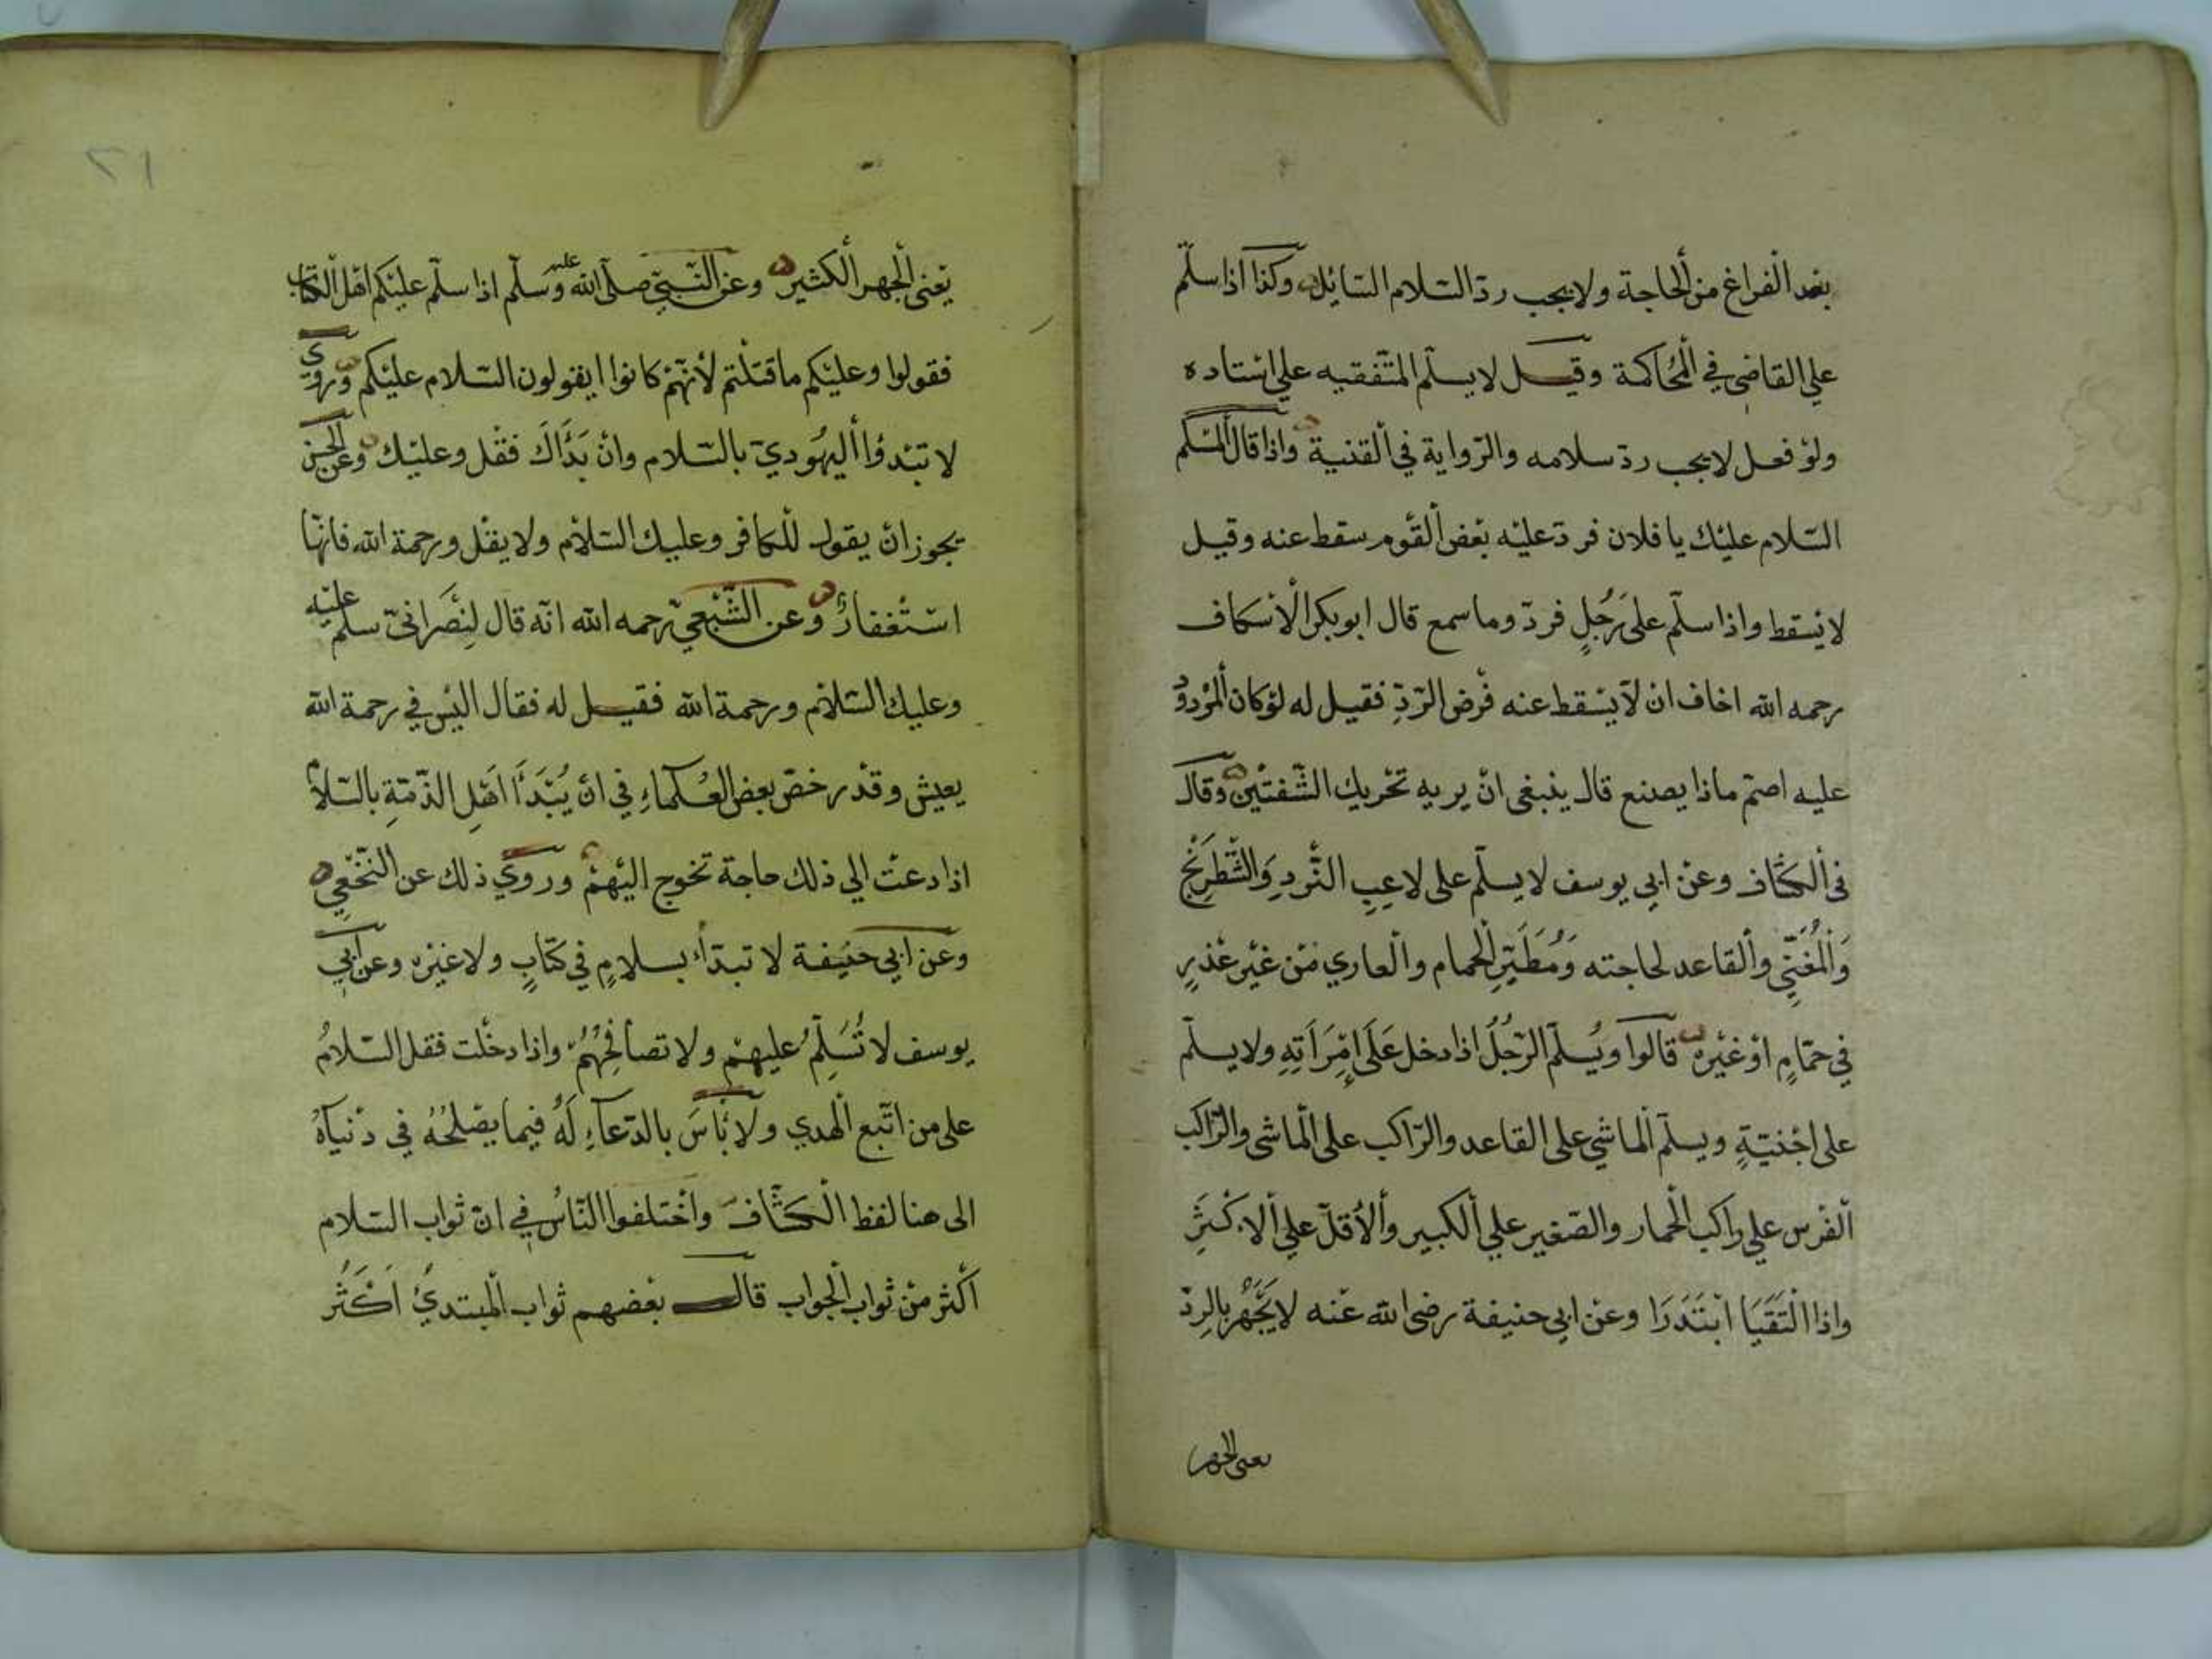 بعد الفراغ من الحاجة ولا يجب ردّ السّلام السّايل وكذا اذا سلّم
علي القاضي في المحاكمة وقيل لا يسلّم المتّفقيه علي استاده
ولو فعل لا يجب ردّ سلامه والرّواية في القنية واذا قال المسلم
السّلام عليك يا فلان فردّ عليه بعض القوم سقط عنه وقيل
لا يسقط واذا سلّم على رجل فردّ وما سمع قال ابو بكر الاسكاف
رحمه الله اخاف ان لا يسقط عنه فرض الرّدّ فقيل له لو كان المردود
عليه اصمّ ماذا يصنع قال ينبغي ان يريه تحريك الشّفتين وقال
في الكشّاف وعن ابي يوسف لا يسلّم على لاعب النّرد والشّطرنج
والمغنّي والقاعد لحاجته ومطيّر الحمام والعاري من غير عذر
في حمّام او غيره قالوا ويسلّم الرّجل اذا دخل على إمرأته ولا يسلّم
على اجنبيّة ويسلّم الماشي على القاعد والرّاكب على الماشي والرّاكب
الفرس علي راكب الحمار والصّغير علي الكبير والأقلّ علي الاكثر
واذا التقيا ابتدرا وعن ابي حنيفة رضي الله عنه لا يجهر بالردّ
يعني الجهر
٢١
يعني الجهر الكثير وعن النّبيّ صلّى الله عليه وسلّم اذا سلّم عليكم اهل الكتاب
فقولوا وعليكم ما قتلتم لأنّهم كانوا ايقولون السّلام عليكم وروي
لا تبدؤا اليهوديّ بالسّلام وان بدأك فقل وعليك وعن الحسن
يجوز ان يقول للكافر وعليك السّلام ولا يقل ورحمة الله فانّها
استغفار وعن الشّعبيّ رحمه الله انّه قال لنصرانيّ سلّم عليه
وعليك السّلام ورحمة الله فقيل له فقال اليس في رحمة الله
يعيش وقد رخصّ بعض العلماء في ان يبدأ اهل الذّمّة بالسّلام
اذا دعت الي ذلك حاجة تخوج اليهم وروي ذلك عن النّخعي
وعن ابي حنيفة لا تبدأ بسلام في كتاب ولا غيره وعن ابي
يوسف لا تسلّم عليهم ولا تصافحهم واذا دخلت فقل السّلام
على من اتّبع الهدي ولا بأس بالدّعاء له فيما يصلحه في دنياه
الى هنا لفظ الكشّاف واختلفوا النّاس في انّ ثواب السّلام
اكثر من ثواب الجواب قال بعضهم ثواب المبتدي اكثر